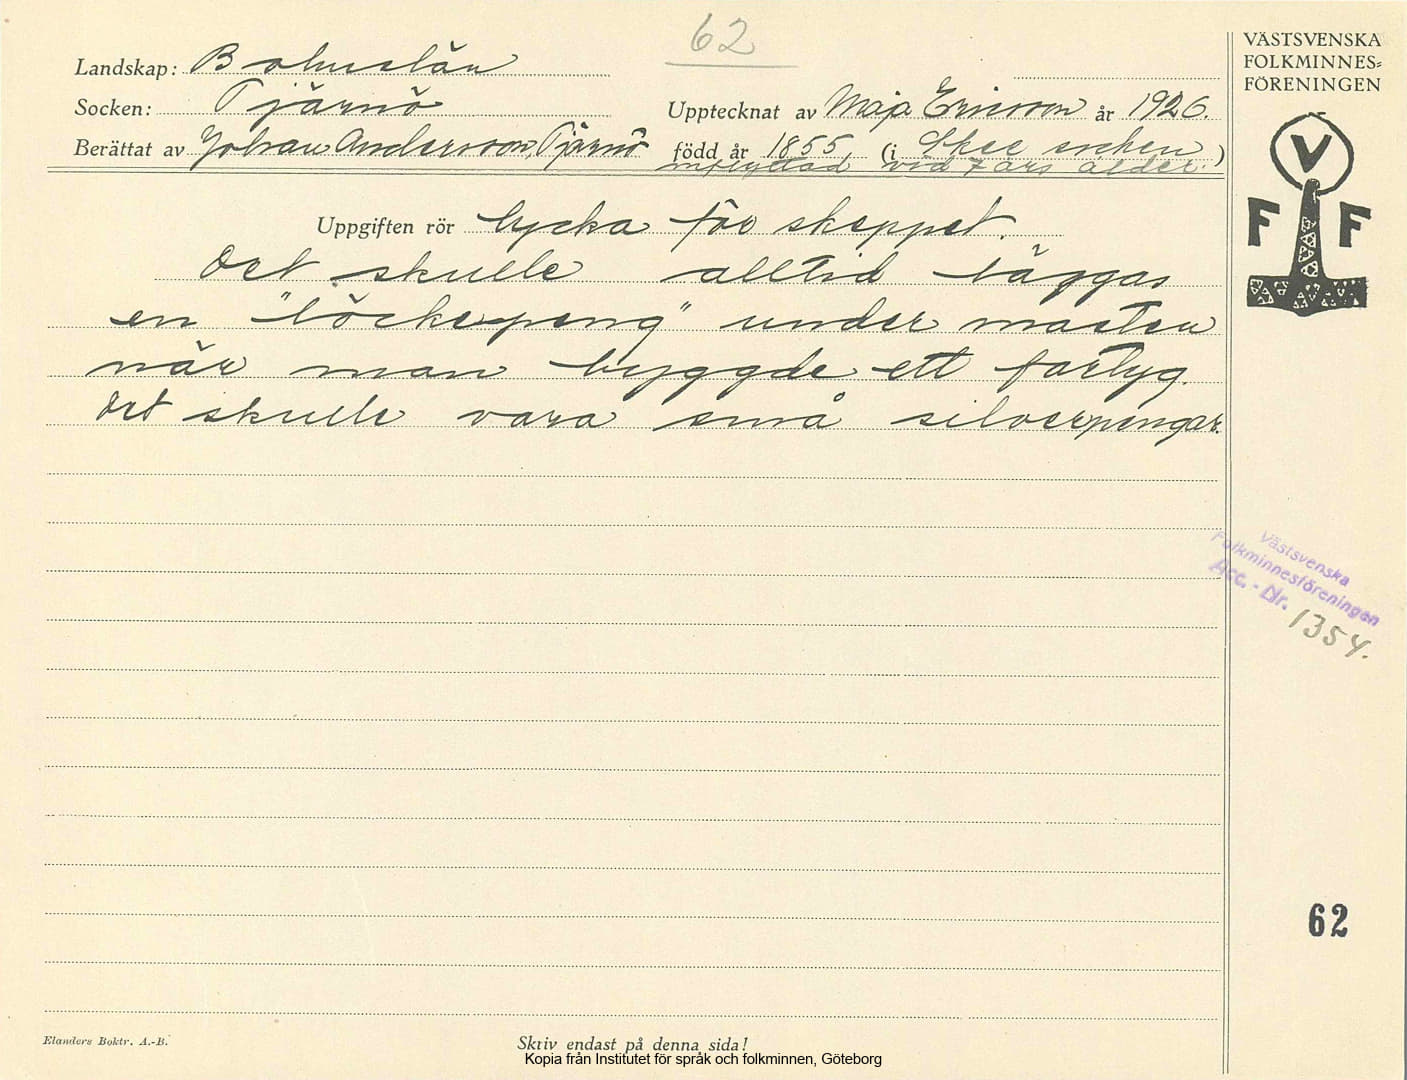 62
Landskap: Bohuslän
Socken: Tjärnö
Upptecknat av Maja Ericsson år 1926.
Berättat av Johan Andersson, Tjärnö född år 1855 (i Skee socken)
inflyttad vid 7 års ålder.
Uppgiften rör lycka för skeppet.
Det skulle alltid läggas
en "löckepeng" under masten
när man byggde ett fartyg.
Det skulle vara små silverpengar.
VÄSTSVENSKA
FOLKMINNES=
FÖRENINGEN
V
F F
Västsvenska
Folkminnesföreningen
Acc. - Nr. 1354.
62
Elanders Boktr. A.-B.
Skriv endast på denna sida!
Kopia från Institutet för språk och folkminnen, Göteborg